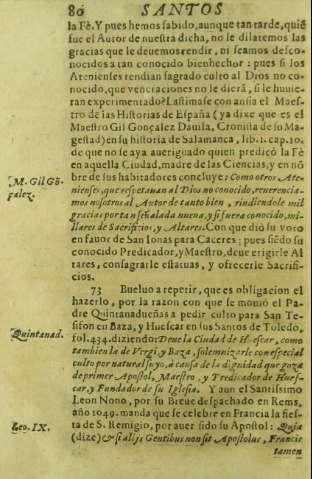 80 SANTOS
la Fè. Y pues hemos sabido, aunque tan tarde, quiē
fue el Autor de nuestra dicha, no le dilatemos las
gracias que le deuemos rendir, ni seamos desco-
nocidos a tan conocido bienhechor: pues si los
Atenienses rendian sagrado culto al Dios no co-
nocido, que veneraciones no le dierā, si le huuie-
ran experimentado? Lastimase con ansia el Maes-
tro de las Historias de España (ya dixe que es el
Maestro Gil Gonçalez Dauila, Cronista de su Ma-
gestad) en su historia de Salamanca, lib. 1. cap. 10.
de que no se aya aueriguado quien predicò la Fè
en aquella Ciudad, madre de las Ciencias, y en nō
bre de sus habitadores concluye: Como otros Ate-
M. Gil Gō-
çalez.
nienses, que respetauan al Dios no conocido, reuerencia-
mos nosotros al Autor de tanto bien, rindiendole mil
gracias por tan señalada nueua, y si fuera conocido, mi-
llares de Sacrificios, y Altares. Con que diò su voto
en fauor de San Ionas para Caceres; pues siēdo su
conocido Predicador, y Maestro, deue erigirle Al
tares, consagrarle estatuas, y ofrecerle Sacrifi-
cios.
73 Bueluo a repetir, que es obligacion el
hazerlo, por la razon con que se mouiò el Pa-
dre Quintanadueñas a pedir culto para San Te-
sifon en Baza, y Huescar en sus Santos de Toledo,
Quintanad.
fol. 434. diziendo: Deue la Ciudad de Huescar, como
tambien la de Vergi, y Baza, solemnizarle con especial
culto por natural suyo, à causa de la dignidad que goza
de primer Apostol, Maestro, y Predicador de Hues-
car, y Fundador de su Iglesia. Y aun el Santissimo
Leo. IX.
Leon Nono, por su Breue despachado en Rems,
año 1049. manda que se celebre en Francia la fies-
ta de S. Remigio, por auer sido su Apostol: Quia
(dize) & si alijs Gentibus non sit Apostolus, Francis
tamen